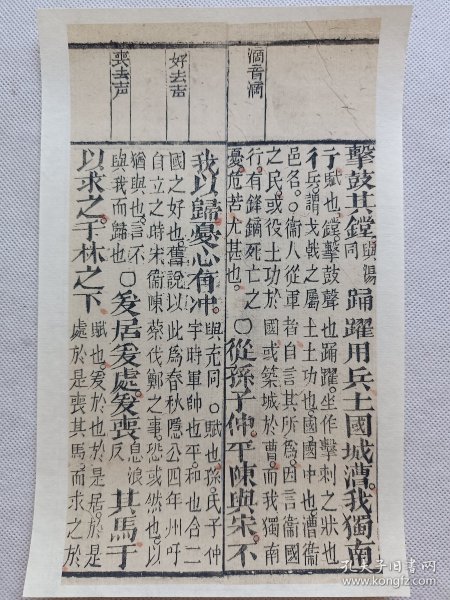 滴音滴
好去声
喪去声
擊鼓其鏜與湯同踊躍用兵土國城漕我獨南
行賦也鏜擊鼓聲也踊躍坐作擊刺之狀也
行兵謂戈戟之屬土土功也國國中也漕衞
邑名○衞人從軍者自言其所爲因言衞國
之民或役土功於國或築城於漕而我獨南
行有鋒鏑死亡之
憂危苦尤甚也
○從孫子仲平陳與宋不
我以歸憂心有冲
與充同○賦也孫氏子仲
字時軍帥也平和也合二
國之好也舊說以此爲春秋隱公四年州吁
自立之時宋衞陳蔡伐鄭之事恐或然也以
猶與也言不
與我而歸也
○爰居爰處爰喪息浪反其馬于
以求之于林之下
賦也爰於也於是居於是
處於是喪其馬而求之於
孔夫子旧书网
book.kongfz.com